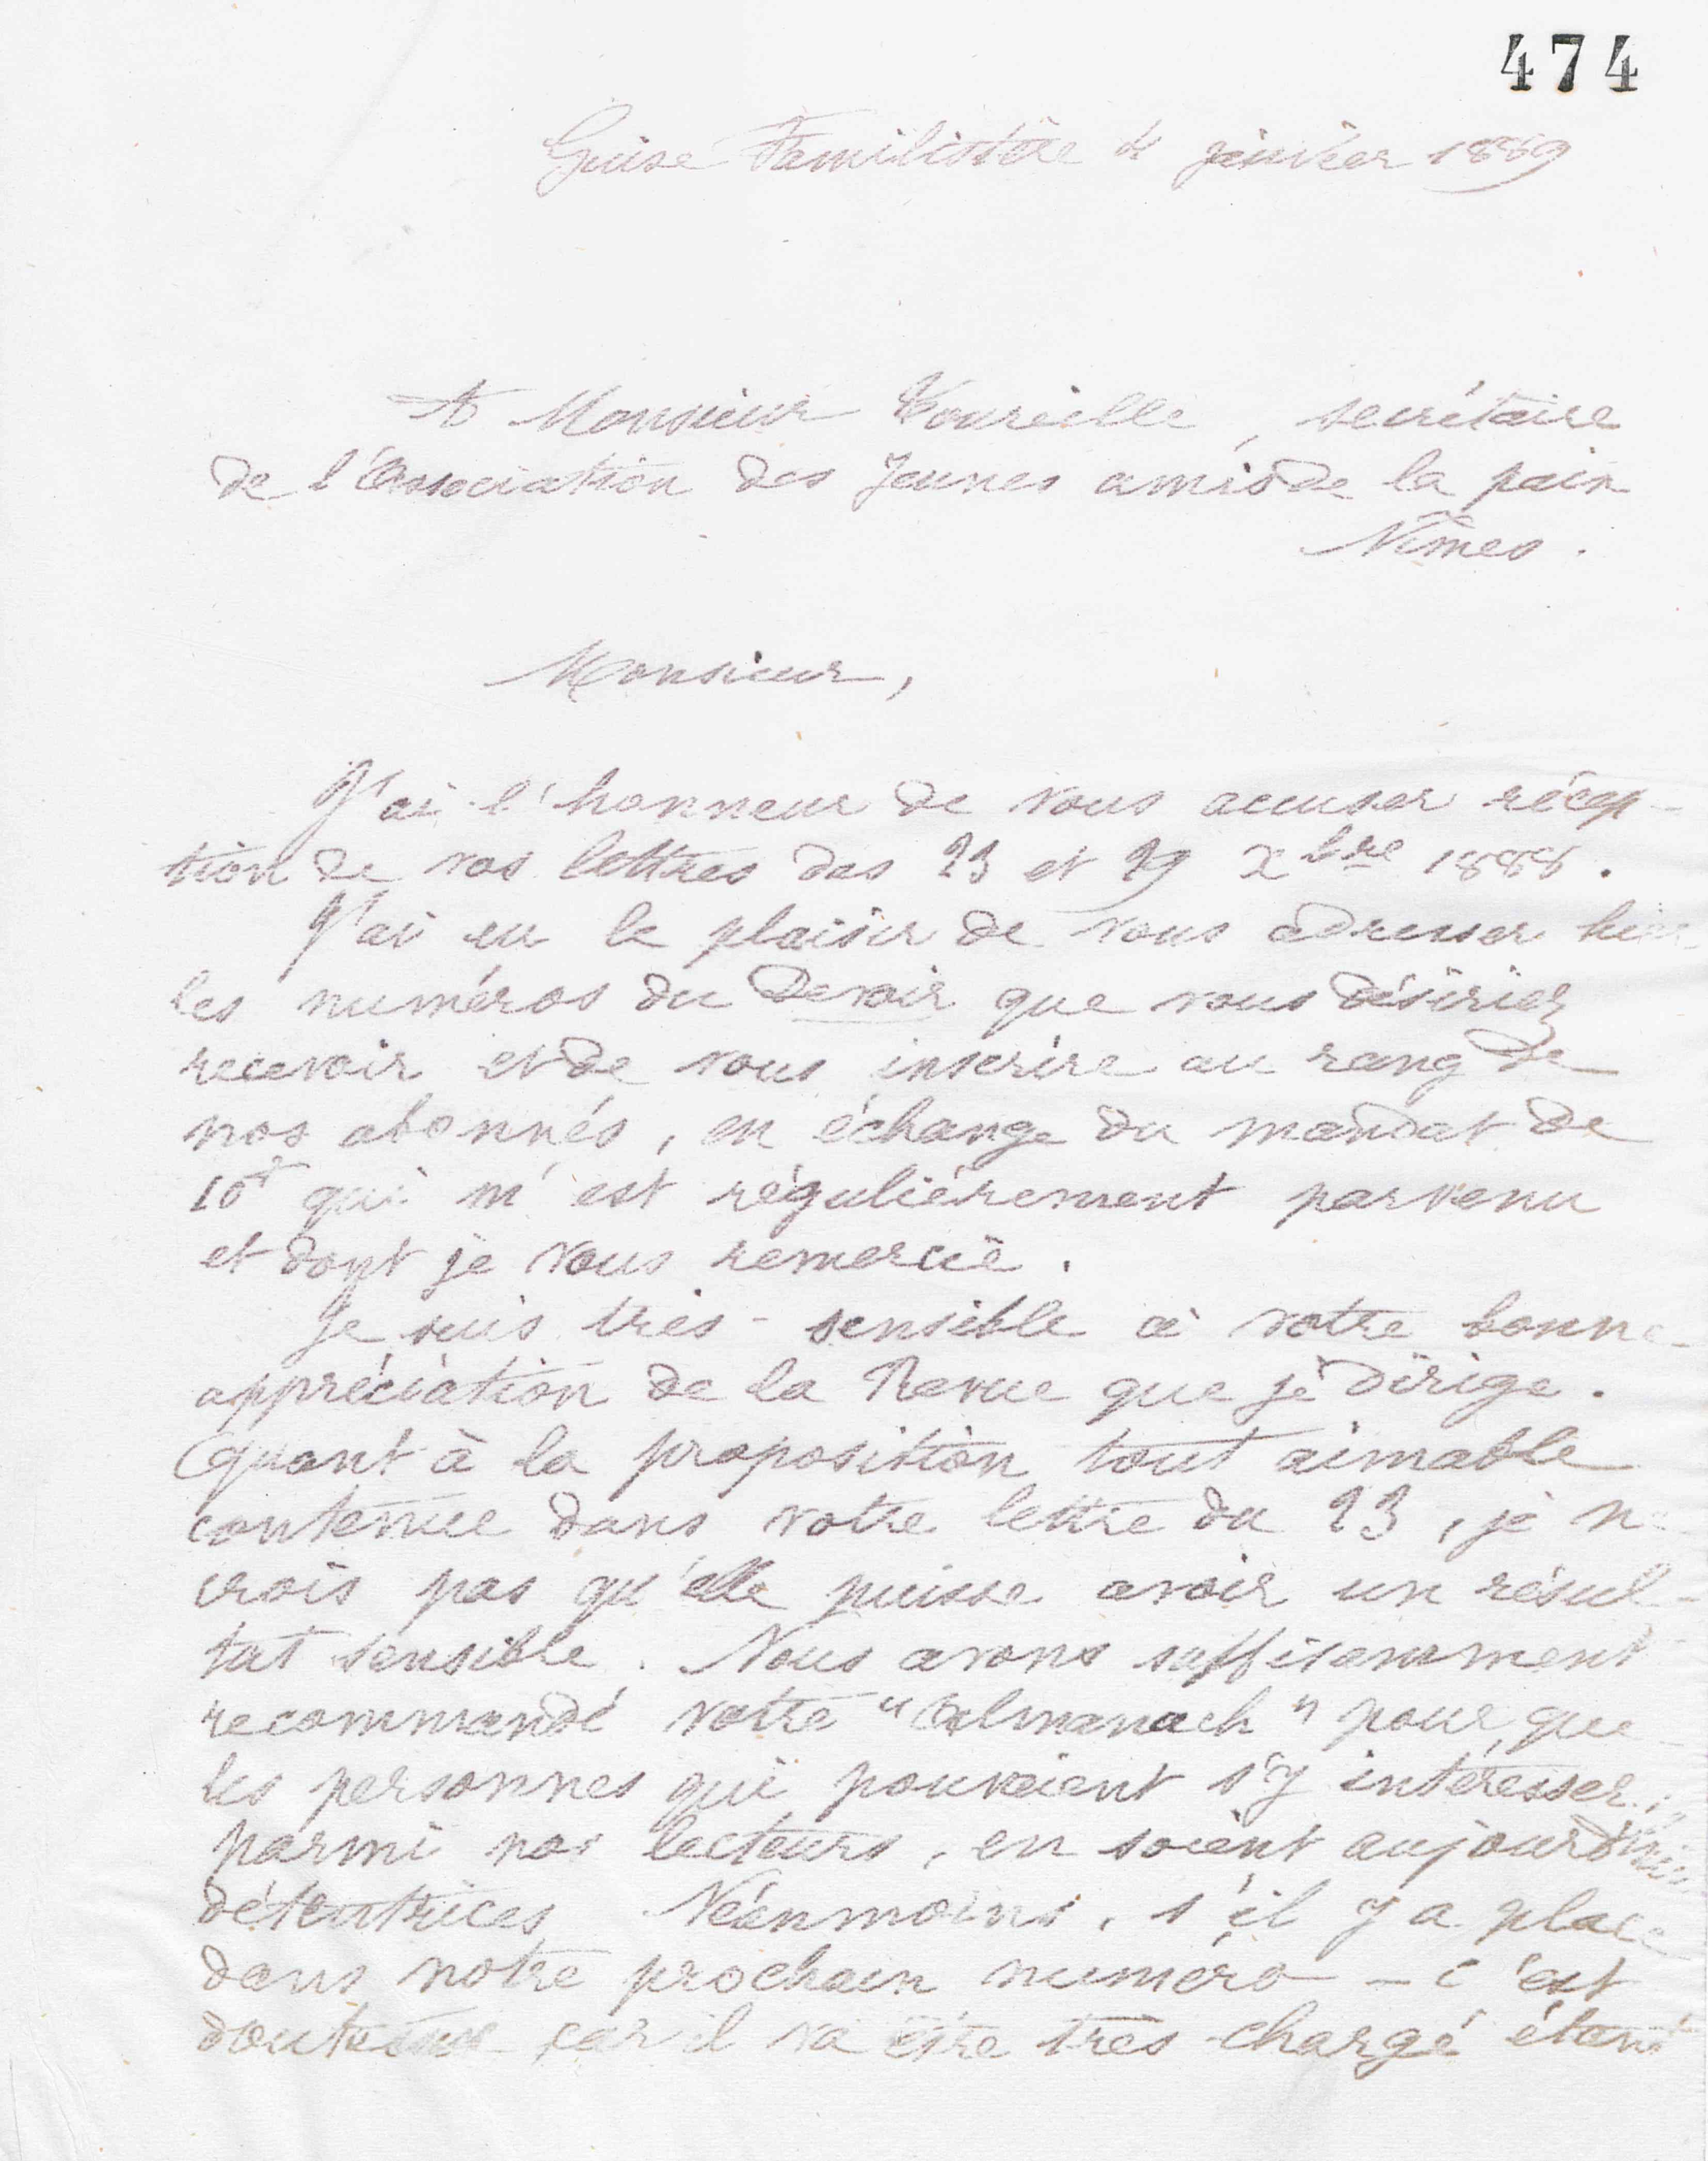 474
Guise Familistère 4 janvier 1889
A Monsieur Toureille, secrétaire
de l'Association des Jeunes amis de la paix
Nîmes.
Monsieur,
J'ai l'honneur de vous accuser récep-
tion de vos lettres des 23 et 29 Xbre 1888.
J'ai eu le plaisir de vous adresser hier
les numéros du Devoir que vous désiriez
recevoir et de vous inscrire au rang de
nos abonnés, en échange du mandat de
10f qui m'est régulièrement parvenu
et dont je vous remercie.
Je suis très-sensible à votre bonne
appréciation de la Revue que je dirige.
Quant à la proposition tout aimable
contenue dans votre lettre du 23, je ne
crois pas qu'elle puisse avoir un résul-
tat sensible. Nous avons suffisamment
recommandé votre "Almanach" pour que
les personnes qui pouvaient s'y intéresser,
parmi nos lecteurs, en soient aujourd'hui
détentrices. Néanmoins, s'il y a place
dans notre prochain numéro - c'est
douteux car il va être très chargé étant